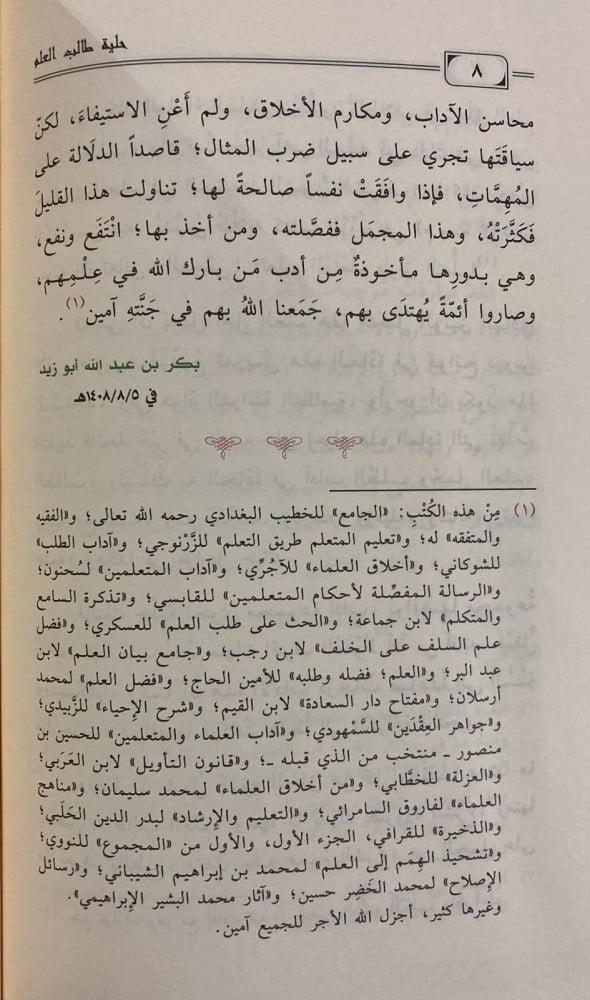 حلية طالب العلم
٨
محاسن الآداب، ومكارم الأخلاق، ولم أَعْنِ الاستيفاءَ، لكنّ
سياقَتَها تجري على سبيل ضرب المثال؛ قاصداً الدلَالة على
المُهِمَّاتِ، فإذا وافَقَتْ نفساً صالحةً لها؛ تناولت هذا القليلَ
فَكَثَّرَتْهُ، وهذا المجمَل ففصَّلته، ومن أخذ بها؛ انْتَفَع ونفع،
وهي بدورِها مأخوذةٌ مِن أدب مَن بارك الله في عِلْمِهم،
وصاروا أئمّةً يُهتدَى بهم، جَمَعنا اللهُ بهم في جَنَّتهِ آمين(١).
بكر بن عبد الله أبو زيد
في ١٤٠٨/٨/٥هـ
(١) مِنْ هذه الكُتْبِ: «الجامع» للخطيب البغدادي رحمه الله تعالى؛ و«الفقيه
والمتفقه» له؛ و«تعليم المتعلم طريق التعلم» للزَّرْنوجي؛ و«آداب الطلب»
للشوكاني؛ و«أخلاق العلماء» للآجُرِّي؛ و«آداب المتعلمين» لسُحنون؛
و«الرسالة المفصِّلة لأحكام المتعلمين» للقابسي؛ و«تذكرة السامع
والمتكلم» لابن جماعة؛ و«الحث على طلب العلم» للعسكري؛ و«فضل
علم السلف على الخلف» لابن رجب؛ و«جامع بيان العلم» لابن
عبد البر؛ و«العلم؛ فضله وطلبه» للأمين الحاج؛ و«فضل العلم» لمحمد
أرسلان؛ و«مفتاح دار السعادة» لابن القيم؛ و«شرح الإحياء» للزَّبيدي؛
و«جواهر العِقْدَين» للسَّمْهودي؛ و«آداب العلماء والمتعلمين» للحسين بن
منصور ـ منتخب من الذي قبله ـ؛ و«قانون التأويل» لابن العَرَبي؛
و«العزلة» للخطَّابي؛ و«من أخلاق العلماء» لمحمد سليمان؛ و«مناهج
العلماء» لفاروق السامرائي؛ و«التعليم والإرشاد» لبدر الدين الحَلَبي؛
و«الذخيرة» للقرافي، الجزء الأول، والأول من «المجموع» للنووي؛
و«تشحيذ الهِمَم إلى العلم» لمحمد بن إبراهيم الشيباني؛ و«رسائل
الإصلاح» لمحمد الخَضِر حسين؛ و«آثار محمد البشير الإبراهيمي».
وغيرها كثير، أجزل الله الأجر للجميع آمين.